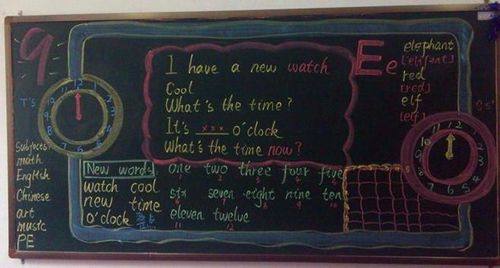 9
I have a new watch
Cool
What's the time?
It's xxx o'clock
What's the time now?
Ee
elephant
red
[red]
elf
[elf]
T's
12
1
2
3
4
5
6
7
8
9
10
11
S's
12
1
2
3
4
5
6
7
8
9
10
11
Subjects:
math
English
Chinese
art
music
PE
New words
watch cool
new time
o'clock
one two three four five
1 2 3 4 5
six seven eight nine ten
6 7 8 9 10
eleven twelve
11 12